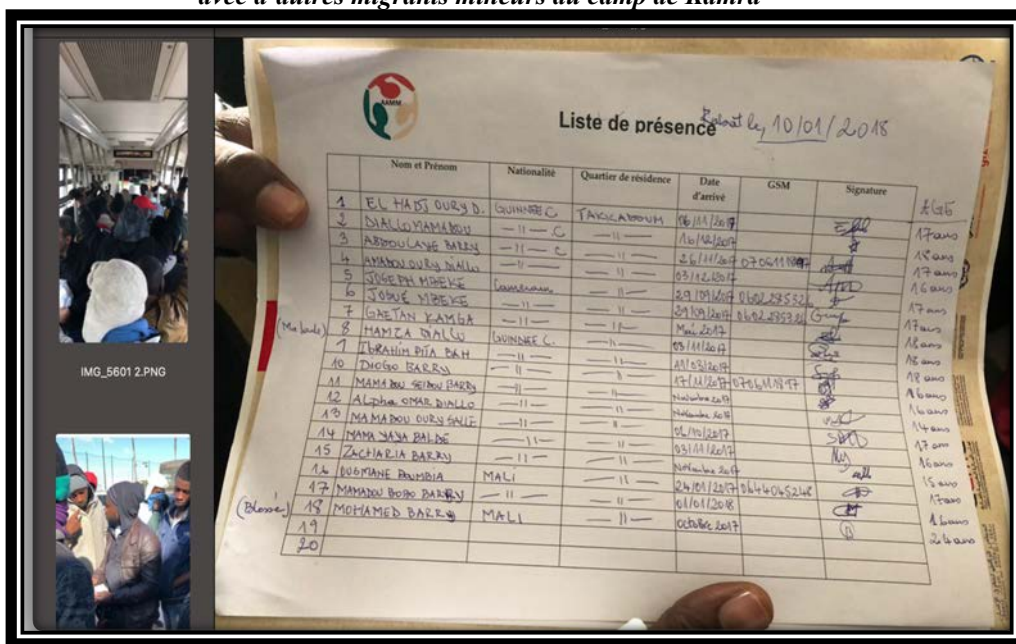 avec d'autres migrants mineurs du camp de Kamra
AAMM
Liste de présence Rabat le, 10/01/2018
Nom et Prénom Nationalité Quartier de résidence Date d'arrivé GSM Signature AGE
1 EL HADJ OURY D. GUINNEE C TAKICADOUM 06/11/2017 17 ans
2 DIALLO MAMADOU —11— C —11— 10/12/2017 18 ans
3 ABDOULAYE BARRY —11— C —11— 26/11/2017 17 ans
4 AMADOU OURY DIALLO —11— 03/12/2017 16 ans
5 JOSEPH MBEKE Cameroun —11— 29/09/2017 17 ans
6 JOSUÉ MBEKE —11— —11— 29/09/2017 17 ans
7 GAETAN KAMGA —11— —11— Mai 2017 18 ans
(Malade) 8 HAMZA DIALLO GUINNEE C. —11— 03/11/2017 18 ans
9 IBRAHIM PITA BAH —11— —11— 18 ans
10 DIOGO BARRY —11— —11— 17/11/2017 16 ans
11 MAMADOU SEIDOU BARRY —11— —11— Novembre 2017 16 ans
12 ALPHA OMAR DIALLO —11— —11— Novembre 2017 14 ans
13 MAMADOU OURY SALLE —11— —11— 17 ans
14 MAMA YAYA BALDE —11— —11— 03/11/2017 16 ans
15 ZACHARIA BARRY —11— —11— Novembre 2017 15 ans
16 OUSMANE DOUMBIA MALI —11— 24/01/2017 0644045248 17 ans
17 MAMADOU BOBO BARRY —11— —11— 01/01/2018 16 ans
(Blessé) 18 MOHAMED BARRY MALI —11— octobre 2017 24 ans
19
20
IMG_5601 2.PNG